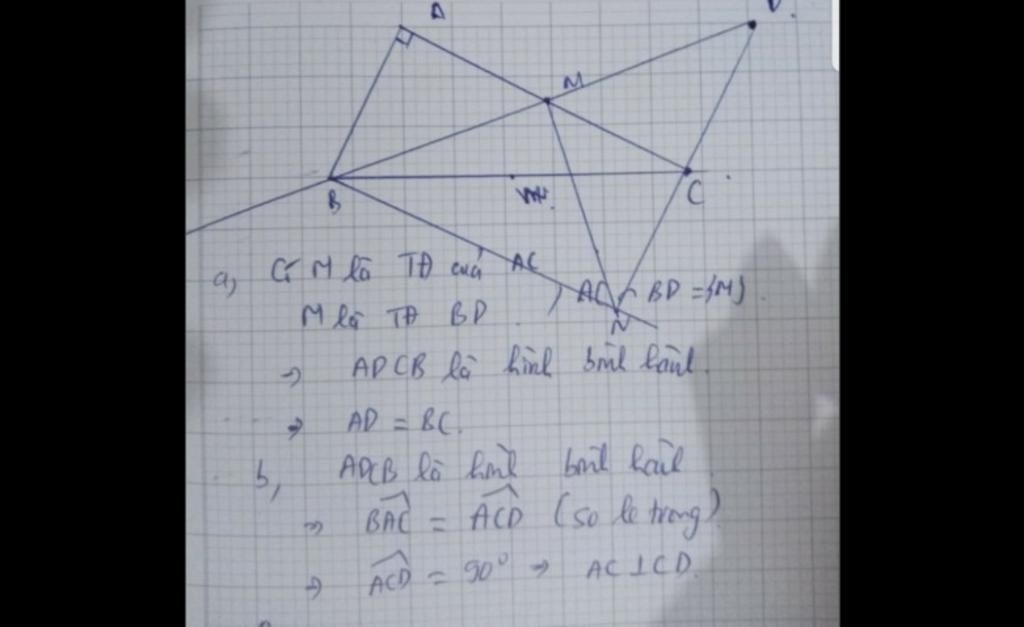 A
D
M
B
C
N
a, Có M là TĐ của AC
M là TĐ BD AC ∩ BD = {M}
→ ADCB là hình bình hành.
→ AD = BC.
b, ADCB là hình bình hành
→ BAC = ACD (so le trong)
→ ACD = 90° → AC ⊥ CD.